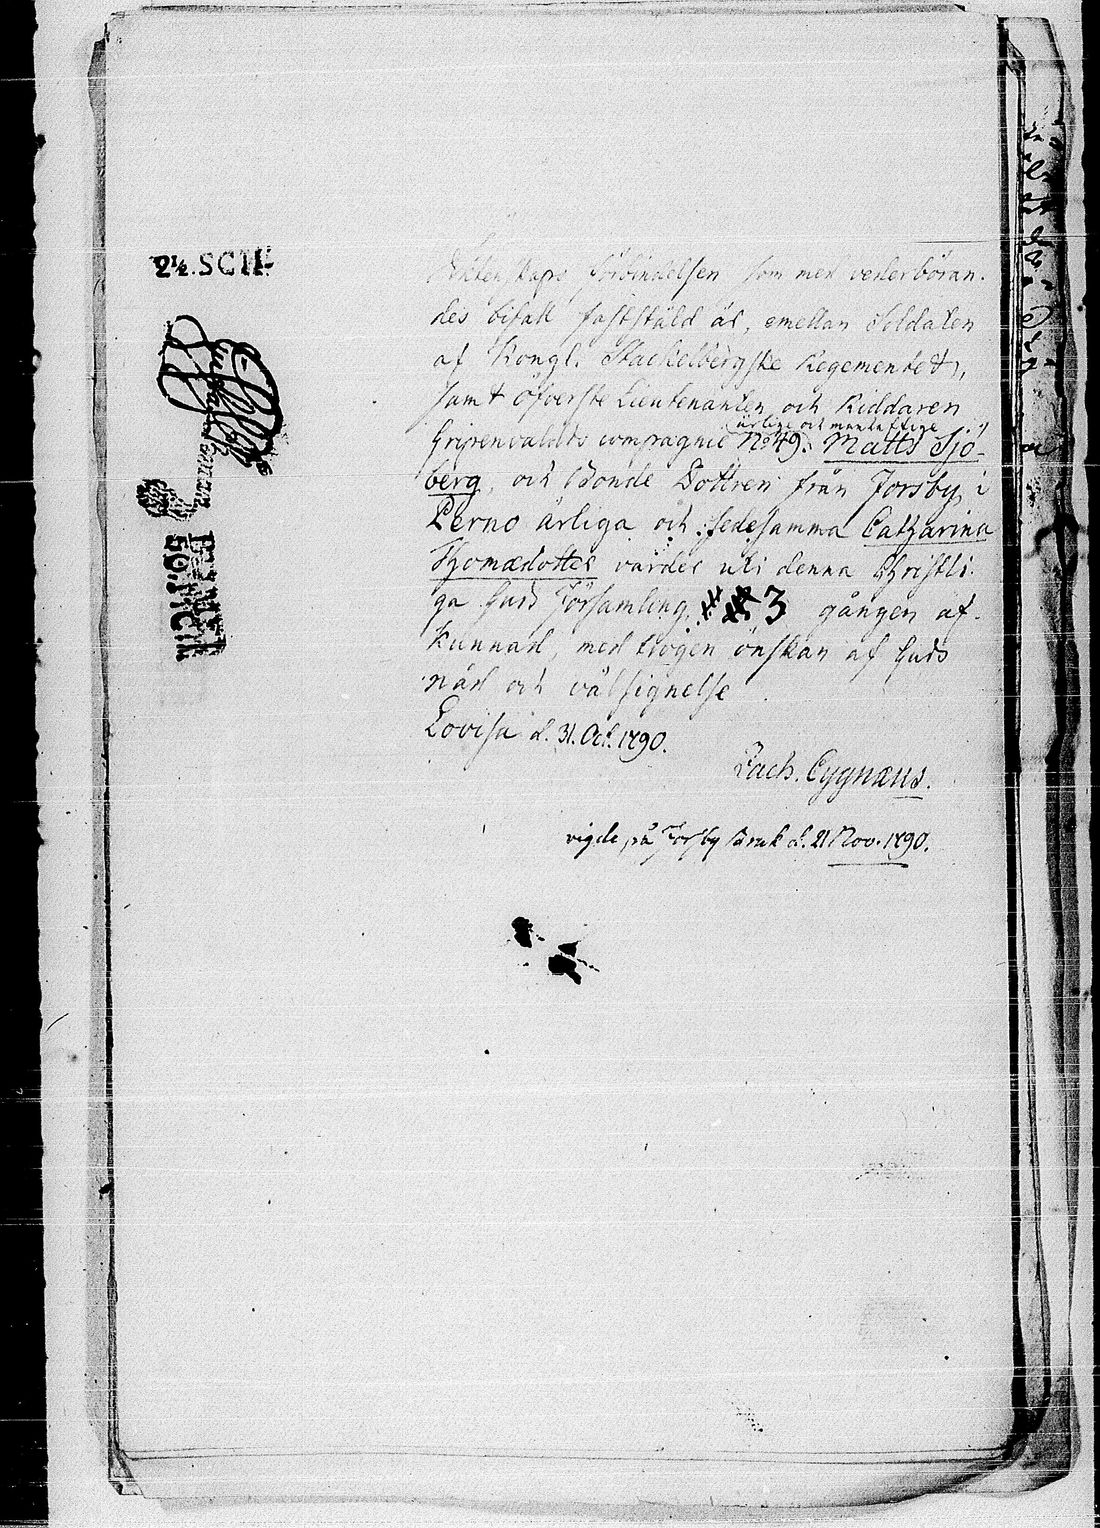 2½. SCHL
Ächtenskaps Förbindelsen som med vederböran-
des bifall fastställd är, emellan Soldaten
af Kongl. Stackelbergske Regementet,
samt Öfverste Lieutenanten och Riddaren
Gripenvaldts compagnie No 49. ärlige och manhaftige Matts Sjö-
berg, och Bonde Dottren från Forsby i
Perno ärliga och sedesamma Catharina
Thomædotter varder uti denna Christli-
ga Guds Församling 3 gången af-
kunnad, med trogen önskan af Guds
nåd och välsignelse
Lovisa d. 31. Oct. 1790.
Zach. Cygnæus.
vigde på Forsby Bruk d. 21 Nov. 1790.